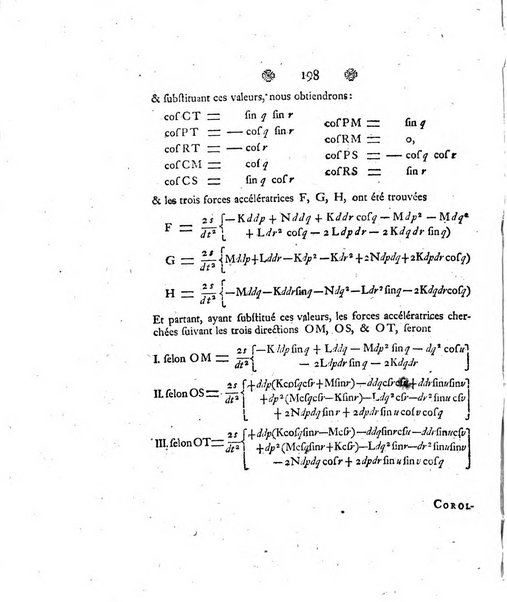 198
& ſubſtituant ces valeurs, nous obtiendrons:
coſCT = ſin q ſin r
coſPT = — coſ q ſin r
coſRT = — coſ r
coſCM = coſ q
coſCS = ſin q coſ r
coſPM = ſin q
coſRM = 0,
coſPS = — coſ q coſ r
coſRS = ſin r
& les trois forces accélératrices F, G, H, ont été trouvées
F = 2s/dt² {—Kddp + Nddq + Kddr coſq — Mdp² — Mdq²
+ Ldr² coſq — 2Ldpdr — 2Kdqdr ſin q)
G = 2s/dt² {Mddp+Lddr—Kdp²—Kdr²+2Ndpdq+2Kdpdr coſq)
H = 2s/dt² {—Mddq—Kddrſinq—Ndq²—Ldr²ſinq—2Kdqdrcoſq)
Et partant, ayant ſubſtitué ces valeurs, les forces accélératrices cher-
chées ſuivant les trois directions OM, OS, & OT, ſeront
I. ſelon OM = 2s/dt² {—Kddpſinq + Lddq — Mdp² ſinq — dq² coſu}
— 2Ldpdr ſinq — 2Kdqdr
II. ſelon OS = 2s/dt² {+ddp(Kcoſqcſr+Mſinr)—ddqcſr +ddrſinuſinv
+dp²(Mcſqcſr—Kſinr)—Ldq²cſr—dr²ſinu cſv
+2Ndpdqſinr+2dpdr ſinu coſv coſq}
III. ſelon OT = 2s/dt² {+ddp(Kcoſqſinr—Mcſr)—ddqſinrcſu—ddrſinucſv
+dp²(Mcſqſinr+Kcſr)—Ldq²ſinr—dr²ſinuſinv
—2Ndpdq coſr+2dpdr ſinu ſinv coſq}
COROL-